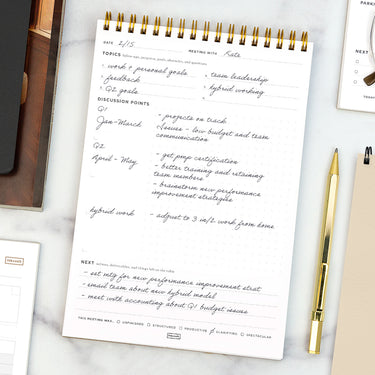 DATE 2/15 MEETING WITH Kate
TOPICS
work + personal goals
team leadership
feedback
hybrid working
Q2 goals
DISCUSSION POINTS
Q1
Jan-March
- projects on track
- Issues - low budget and team
communication
Q2
April - May
- get pmp certification
- better training and retaining
team members
- brainstorm new performance
improvement strategies
hybrid work
- adjust to 3 in/2 work from home
NEXT actions, deliverables, and things left on the table
- set mtg for new performance improvement strat
- email team about new hybrid model
- meet with accounting about Q1 budget issues
THIS MEETING WAS... UNFINISHED STRUCTURED PRODUCTIVE CLARIFYING SPECTACULAR